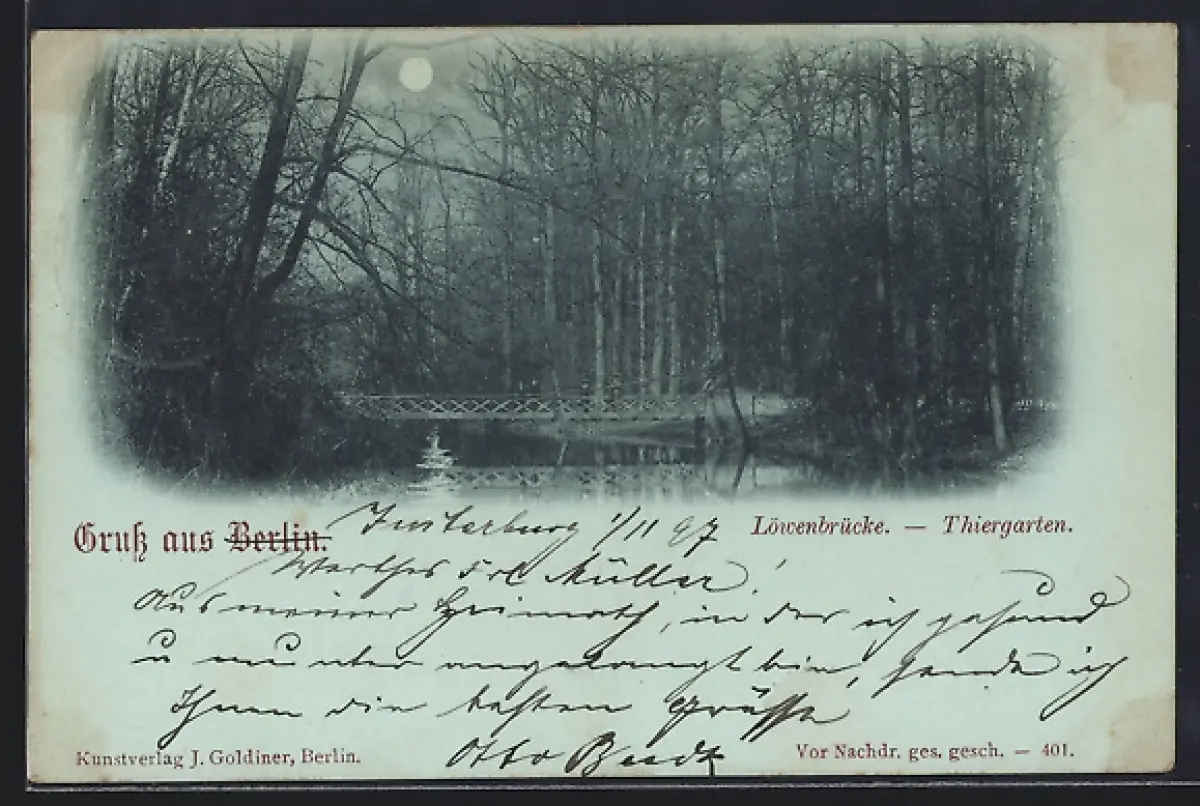 Gruß aus Berlin. Insterburg 1/11 97 Löwenbrücke. — Thiergarten.
Werthes Frl Müller!
Aus meiner Heimath, in der ich gesund
u munter angelangt bin, sende ich
Ihnen die besten Grüsse
Otto
Kunstverlag J. Goldiner, Berlin. Vor Nachdr. ges. gesch. — 401.